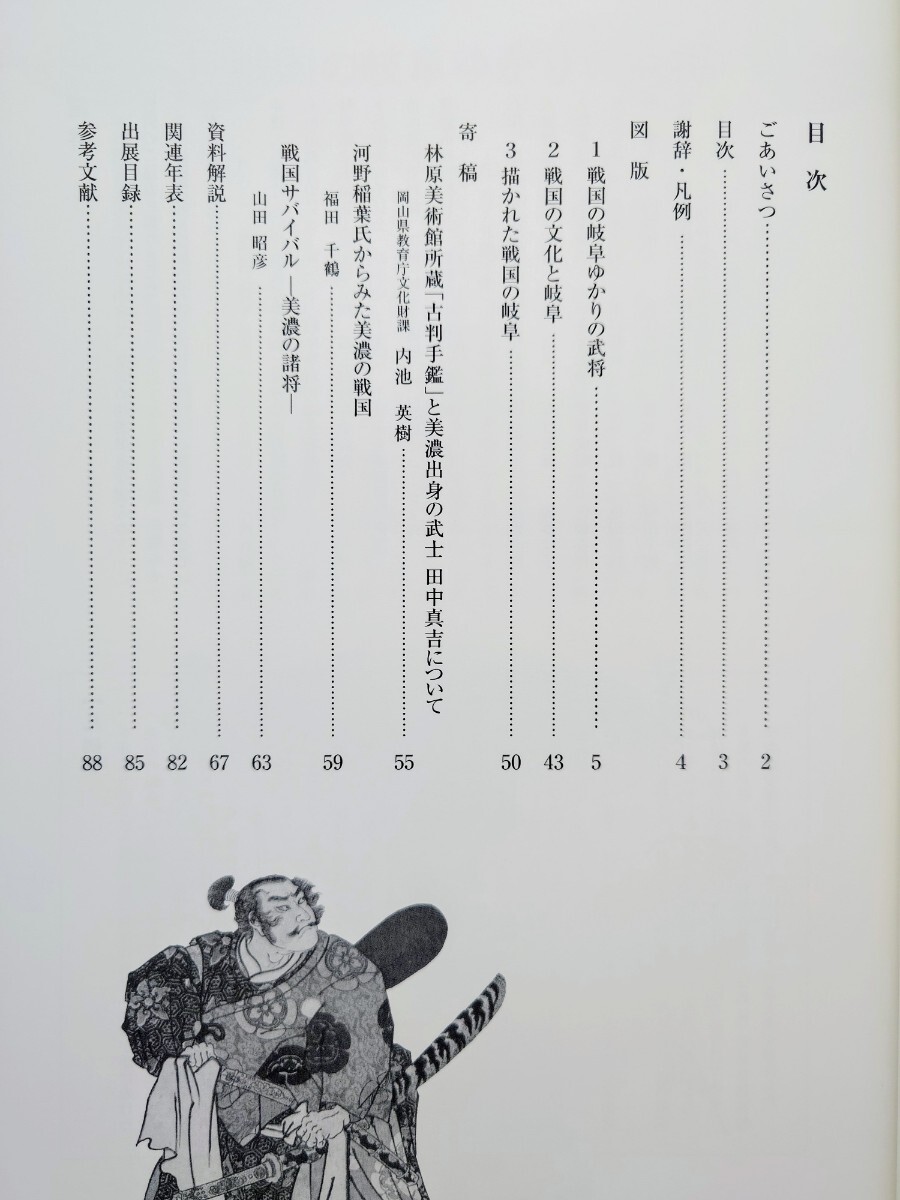 目次
ごあいさつ 2
目次 3
謝辞・凡例 4
図版
1 戦国の岐阜ゆかりの武将 5
2 戦国の文化と岐阜 43
3 描かれた戦国の岐阜 50
寄稿
林原美術館所蔵「古判手鑑」と美濃出身の武士 田中真吉について
岡山県教育庁文化財課 内池 英樹 55
河野稲葉氏からみた美濃の戦国
福田 千鶴 59
戦国サバイバル ―美濃の諸将―
山田 昭彦 63
資料解説 67
関連年表 82
出展目録 85
参考文献 88